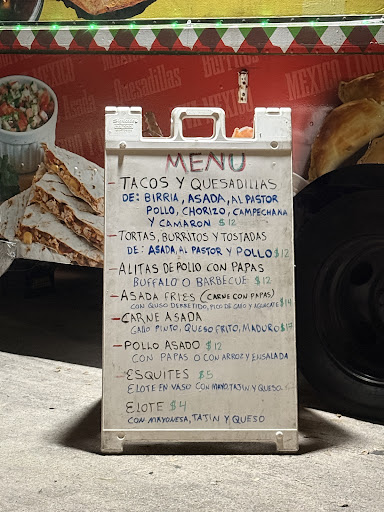 Quesadillas
Burritos
MEXICO LINDO
MENU
- TACOS Y QUESADILLAS
DE: BIRRIA, ASADA, AL PASTOR
POLLO, CHORIZO, CAMPECHANA
Y CAMARON $12
- TORTAS, BURRITOS Y TOSTADAS
DE: ASADA, AL PASTOR Y POLLO $12
- ALITAS DE POLLO CON PAPAS
BUFFALO O BARBECUE $12
- ASADA FRIES (CARNE CON PAPAS)
CON QUSO DERRETIDO, PICO DE GALLO Y AGUACATE $14
- CARNE ASADA
GALLO PINTO, QUESO FRITO, MADURO $17
- POLLO ASADO $12
CON PAPAS O CON ARROZ Y ENSALADA
- ESQUITES $5
ELOTE EN VASO CON MAYO, TAJIN Y QUESO
ELOTE $4
CON MAYONESA, TAJIN Y QUESO